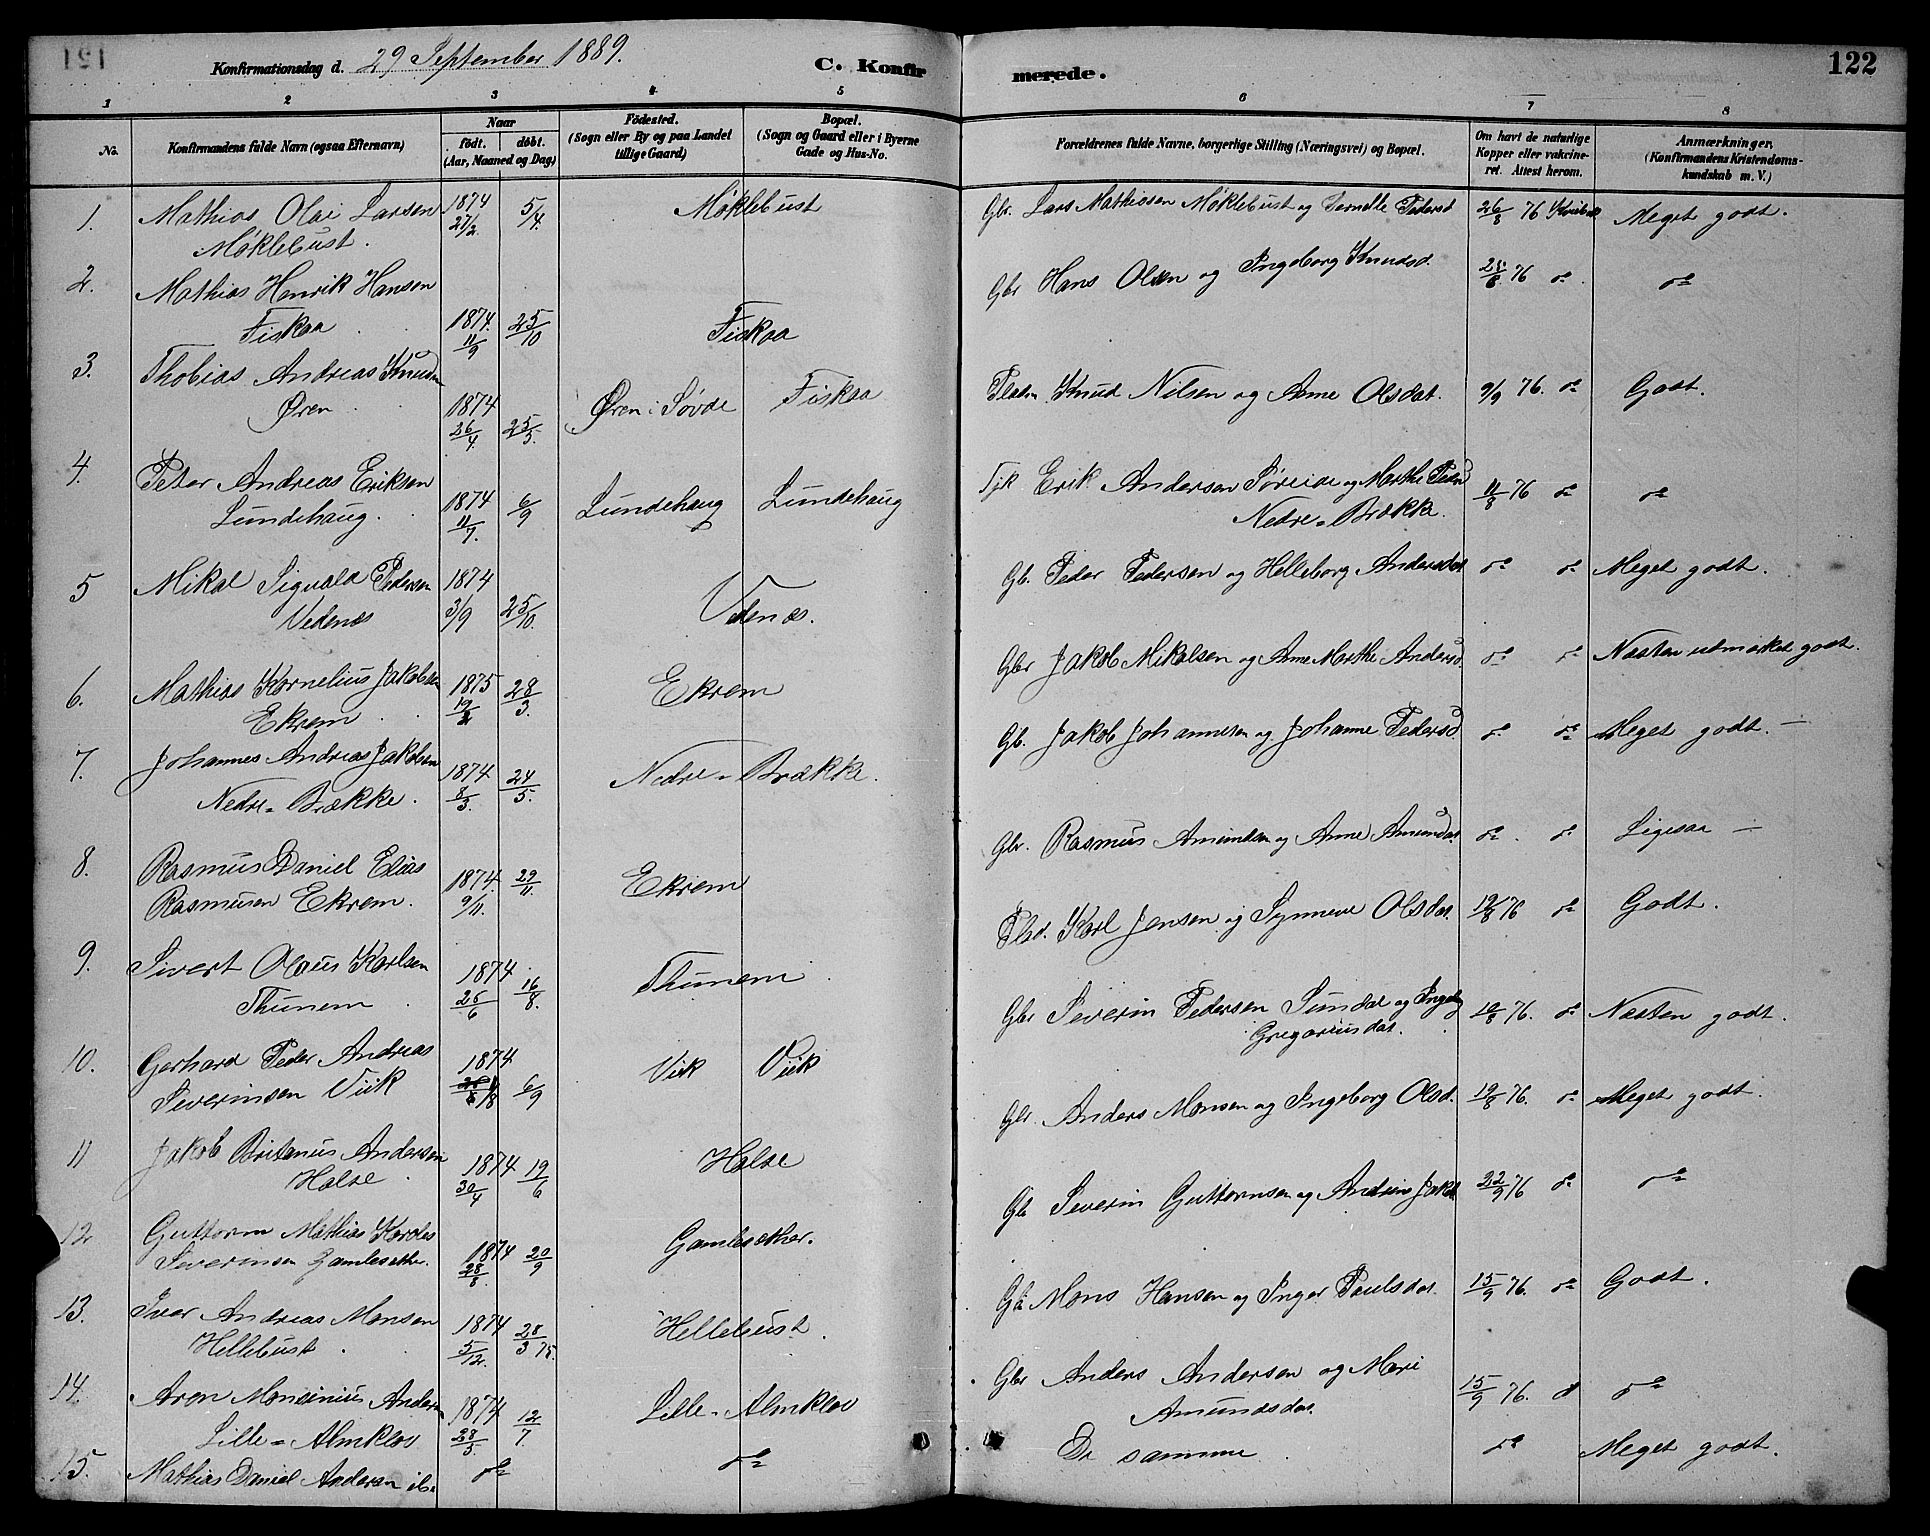 Konfirmationsdag d. 29 September 1889.
C. Konfirmerede.
122
1 2 3 4 5 6 7 8
No.
Konfirmandens fulde Navn (ogsaa Efternavn)
Naar
födt. döbt.
(Aar, Maaned og Dag)
Födested.
(Sogn eller By og paa Landet
tillige Gaard)
Bopæl.
(Sogn og Gaard eller i Byerne
Gade og Hus-No.
Forældrenes fulde Navne, borgerlige Stilling (Næringsvei) og Bopæl.
Om havt de naturlige
Kopper eller vakcine-
ret. Attest herom.
Anmærkninger.
(Konfirmandens Kristendoms-
kundskab m. V.)
1. Mathias Olai Larsen
Møklebust.
1874 27/2. 5/4. Møklebust
Gbr. Lars Mathiasen Møklebust og Pedersd 26/8 76 Meget godt.
2. Mathias Henrik Hansen
Fiskaa
1874. 11/9 25/10 Fiskaa
Gbr Hans Olsen og Ingeborg Knudsd. 25/8 76 do do
3. Thobias Andreas Knuds
Øren
1874 26/4. 25/5. Øren i Søvde Fiskaa
Plads. Knud Nilsen og Anne Olsdat. 9/9 76. do Godt.
4. Peter Andreas Eriksen
Lundehaug.
1874 11/7. 6/9 Lundehaug Lundehaug
Erik Andersen Søreide og Marthe Ped
Nedre-Brække.
11/8 76 do do
5 Mikal Sigvald Pedersen
Vedenæs
1874 3/9 25/10. Vedenæs.
Gb. Peder Pedersen og Helleborg Andersdat do do Meget godt.
6. Mathias Kornelius Jakobsen
Ekrem
1875 19/2 28/3. Ekrem
Gbr Jakob Mikalsen og Ane Marthe Andersd. do do Næsten udmærket godt.
7. Johannes Andreas Jakobsen
Nedre-Brække.
1874 8/3. 24/5. Nedre-Brække.
Gb. Jakob Johannesen og Johanne Pedersd do do Meget godt. —
8. Rasmus Daniel Elias
Rasmusen Ekrem.
1874. 9/11. 29/11. Ekrem
Gbr. Rasmus Amundsen og Anne Amundsdat. do do Ligesaa —
9. Sivert Olaus Karlsen
Thunem
1874 26/6 16/8. Thunem
Plad. Karl Jensen og Synneve Olsdat. 19/8 76 do Godt.
10. Gerhard Peder Andreas
Severinsen Viik
1874 1/8 6/9 Viik Viik
Gbr Severin Pedersen Sundal og Ingeb
Gregoriusdat.
19/8 76. do Næsten godt.
11 Jakob Britanus Andersen
Halse
1874 30/4 19/6 Halse
Gbr. Anders Monsen og Ingeborg Olsd. 19/8 76. do Meget godt.
12 Guttorm Mathias Kordes
Severinsen Gamlesæther.
1874 28/8. 20/9 Gamlesæther.
Gb Severin Guttormsen og Andrine Jakd 22/9 76 do do
13. Ivar Andreas Monsen
Hellebust.
1874 5/12. 28/3 75. Hellebust.
Gb Mons Hansen og Inger Paulsdat. 15/9 76. do Godt.
14. Aron Monsinius Anders
Lille-Almklov
1874 28/5. 12/7. Lille-Almklov
Gbr Anders Andersen og Mari
Amundsdat.
15/9 76. do do
15. Mathias Daniel Andersen ib.
do do
De samme do Meget godt.